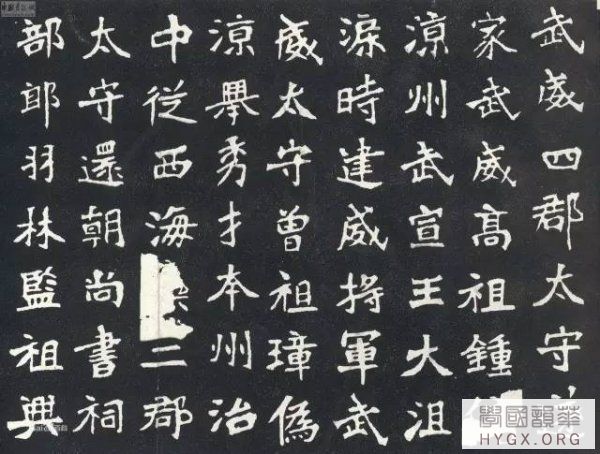 武威四郡太守
家武威高祖鍾
涼州武宣王大沮
渠時建威將軍武
威太守曾祖璋偽
涼舉秀才本州治
中從西海二郡
太守還朝尚書祠
部郎羽林監祖興
學國韻華
HYGX.ORG